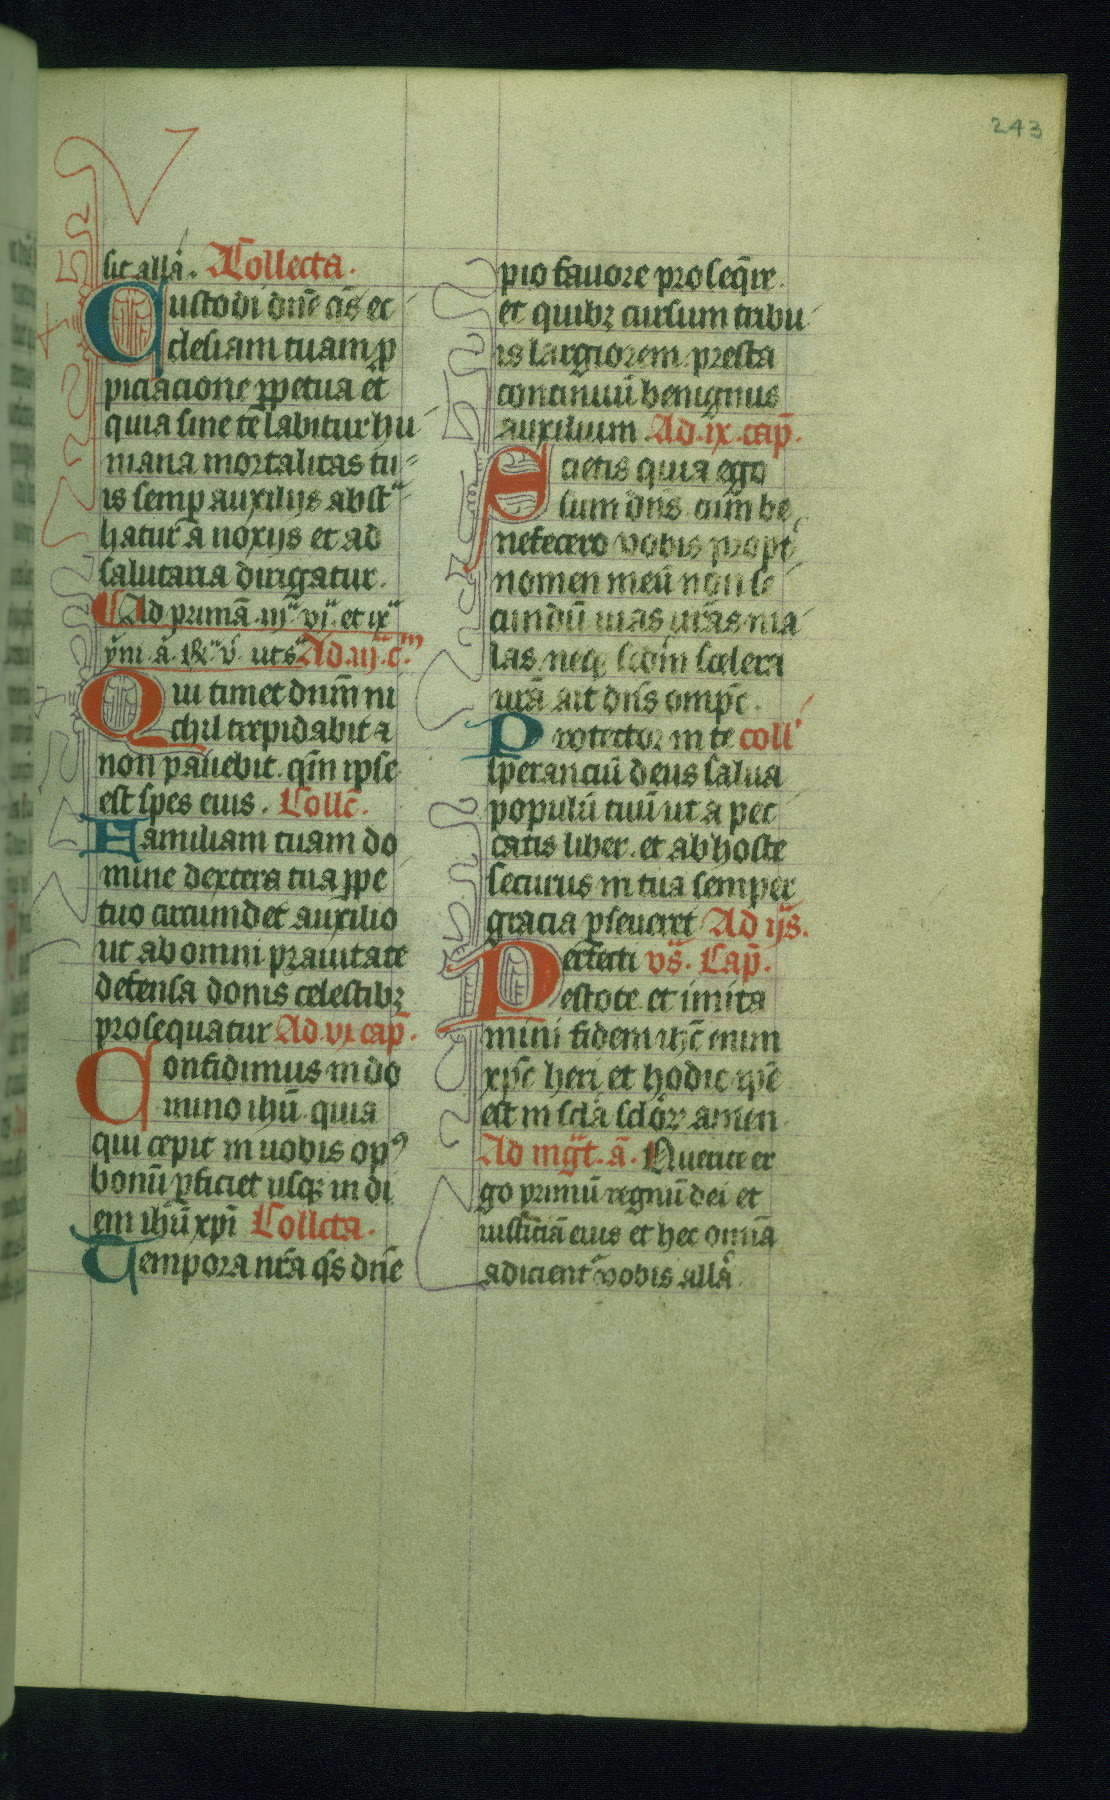 243
sit allā. Collecta.
Custodi dn̄e q̄s ec
clesiam tuam ꝓ
piciacione ꝑpetua et
quia sine te labitur hu
mana mortalitas tu
is semꝑ auxilijs abst
hatur a noxijs et ad
salutaria dirigatur.
Ad primā .iij. vj. et ix
ym̄. a. R. v. ut s. Ad .iij. c.
Qui timet dn̄m ni
chil trepidabit a
non pauebit. qm̄ ipse
est spes eius. Coll̄c.
Familiam tuam do
mine dextera tua ꝑpe
tuo circumdet auxilio
ut ab omni prauitate
defensa donis celestibꝫ
prosequatur Ad .vi. cap̄.
Confidimus in do
mino ihū. quia
qui cepit in uobis opꝰ
bonū ꝑficiet usqꝫ in di
em ihū xp̄i Coll̄cta.
Tempora nr̄a q̄s dn̄e
pio fauore proseq̄re.
et quibꝫ cursum tribu
is largiorem. presta
continuū benignus
auxilium. Ad .ix. cap̄.
Scietis quia ego
sum dn̄s. cum be
nefecero vobis propt
nomen meū non se
cundū uias ur̄as ma
las. neqꝫ scdm̄ scelera
ur̄a ait dn̄s omp̄c.
Protector in te coll
speranciū deus salua
populū tuū ut a pec
catis liber. et ab hoste
securus in tua semper
gracia ꝑseueret Ad ijs.
Perfecti vs̄. Cap̄.
estote et imita
mini fidem ihc̄ enim
xp̄c heri et hodie ip̄e
est in scl̄a scl̄oꝝ amen.
Ad mgt̄. ā. Querite er
go primū regnū dei et
iusticiā eius et hec omīa
adicient vobis allā